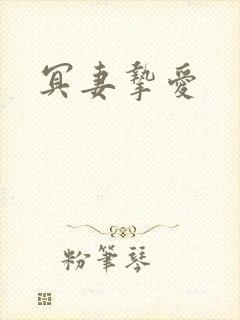 冥妻摯愛
粉筆琴